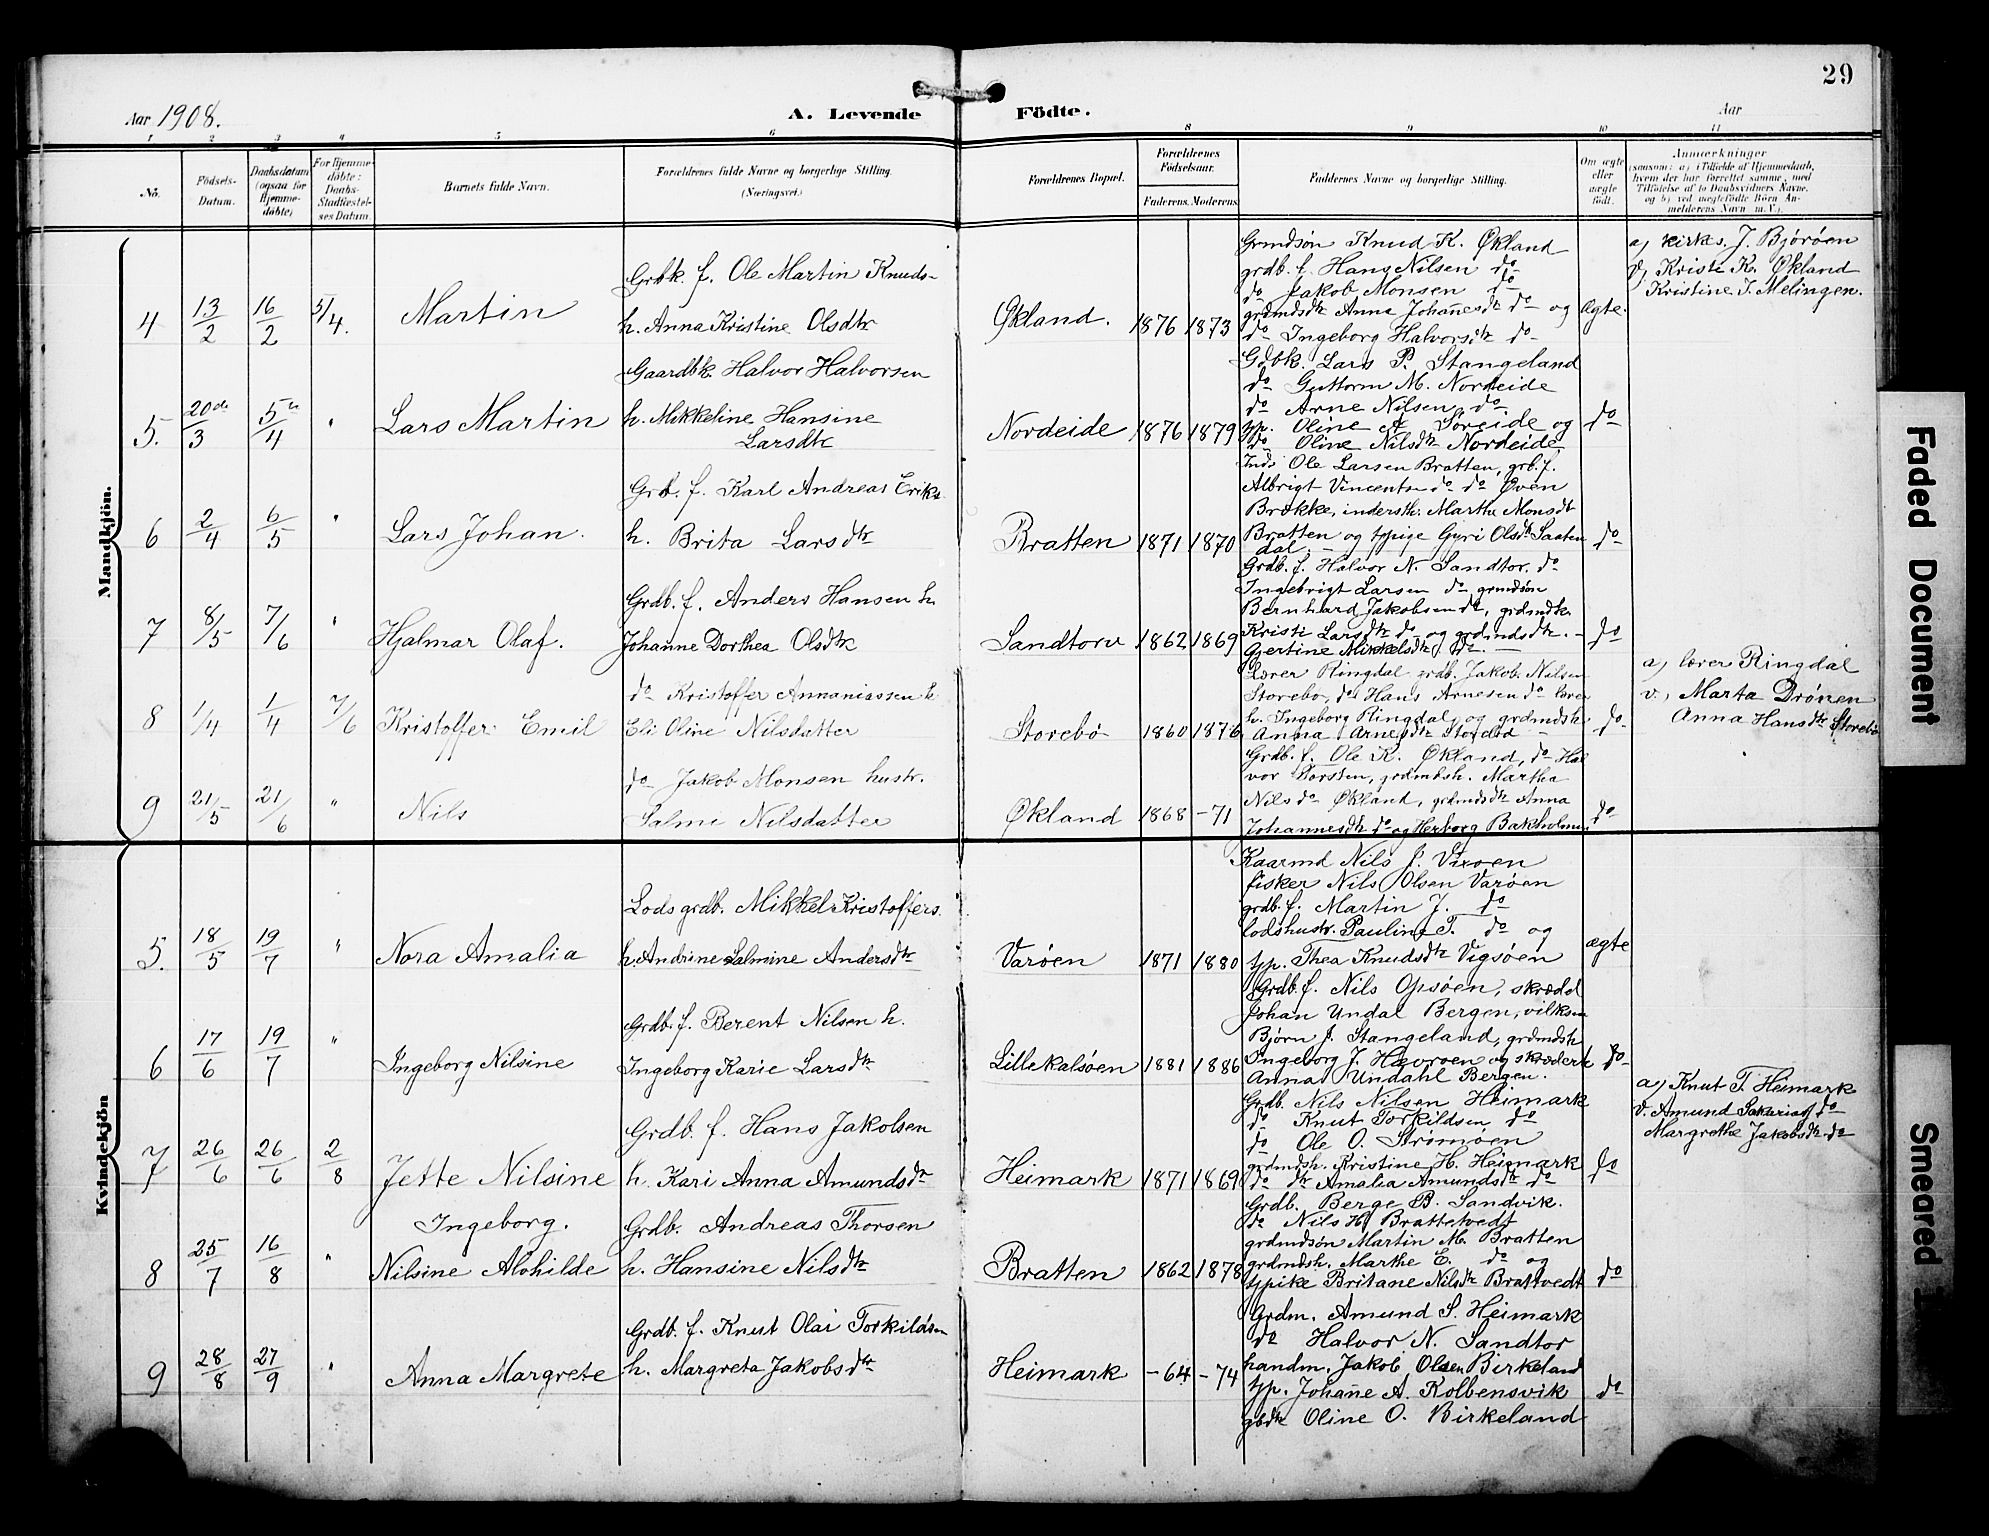 29
Aar 1908.
A. Levende Födte.
Aar
1 2 3 4 5 6 8 9 10 11
No.
Födsels-Datum.
Daabsdatum (ogsaa for Hjemme-döbte)
For Hjemme-döbte: Daabs-Stadfæstel-ses Datum.
Barnets fulde Navn.
Forældrenes fulde Navne og borgerlige Stilling. (Næringsvei.)
Forældrenes Bopæl.
Forældrenes Födselsaar.
Faderens. Moderens.
Faddernes Navne og borgerlige Stilling.
Om ægte eller uægte födt.
Anmærkninger
(saasom: a) i Tilfælde af Hjemmedaab,
hvem der har forrettet samme, med
Tilföielse af to Daabsvidners Navne,
og b) ved uægtefödte Börn An-
melderens Navn m. V.).
Mandkjön.
4 13/2 16/2 5/4. Martin
Grbk. f. Ole Martin Knuds-
h. Anna Kristine Olsdtr
Økland. 1876 1873
Grmdsön Knud K. Økland
grdb. f. Hans Nilsen do
do Jakob Monsen do
grdmdsdtr Anna Johannesdtr do og
do Ingeborg Halvorsdtr do
Ægte.
a, kirks. J. Björöen
v, Kristi K. Økland
Kristine J. Melingen.
5. 20de/3 5te/4 " Lars Martin
Gaardbk. Halvor Halvorsen
h. Mikkeline Hansine
Larsdtr
Nordeide 1876 1879
Gdbk. Lars P. Stangeland
do Guttorm M. Nordeide
do Arne Nilsen do
tjp. Oline Söreide og
do Oline Nilsdtr Nordeide
do
6 2/4 6/5 " Lars Johan.
Grb. f. Karl Andreas Eriks.
h. Brita Larsdtr
Bratten 1871 1870
Inds Ole Larsen Bratten, grb. f.
Albrigt Vincentsn do do Oven
Brække, indersth. Marthe Monsdt
Bratten og tjpige Gyri Olsdtr Saaten
dal. —
do
7 8/5 7/6 " Hjalmar Olaf.
Grdb. f. Anders Hansen h.
Johanne Dorthea Olsdtr
Sandtorv 1862 1869
Grdb. f. Halvor N. Sandtor. do
Ingebrigt Larsen do grmdsön
Bernhard Jakobsen do, grdmdk.
Kristi Larsdtr do og grdmdsdtr. —
Gjertine Mikkelsdtr, do. —
do
8 1/4 1/4 7/6 Kristoffer Emil
do Kristoffer Annaniassen h.
Eli Oline Nilsdatter
Storebö 1860 1876
Lærer Ringdal grdb. Jakob Nilsen
Storebö, do Hans Arnesen do lærer
h. Ingeborg Ringdal og grdmdsh.
Anna Arnesdtr Storebö —
do
a, lærer Ringdal
v., Marta Drönen
Anna Hansdtr Storebö
9 21/5 21/6 " Nils
do Jakob Monsen hustr.
Salmi Nilsdatter
Økland 1868 -71
Grdb. f. Ole K. Økland, do Hal
vor Torsten, grdmdsh. Martha
Nils do Økland, grdmdsdtr Anna
Johannesdtr do og Herborg Bakholm.
do
Kvindekjön
5. 18/5 19/7 " Nora Amalia
Lods grdb. Mikkel Kristoffers.
h. Andrine Salmine Andersdtr
Varöen 1871 1880
Kaarmd Nils J. Vixoen
fisker Nils Olsen Varöen
grdb. f. Martin J. do
lodshustr. Pauline T. do og
tjp. Thea Knudsdtr Vigsöen
ægte
6 17/6 19/7 " Ingeborg Nilsine
Grdb. f. Berent Nilsen h.
Ingeborg Karie Larsdtr
Lillekalsöen 1881 1886
Grdb. f. Nils Opsöen, skrædd
Johan Undal Bergen, vilksm
Björn J. Stangeland, grdmdsh
Ingeborg J. Hævroen og skræderh
Anna Undahl Bergen.
do
7 26/6 26/6 2/8 Jette Nilsine
Ingeborg.
Grdb. f. Hans Jakobsen
h. Kari Anna Amundsdtr
Heimark 1871 1869
Grdb. Nils Nilsen Heimark
do Knut Torkildsen do
do Ole O. Strömöen
grdmdsh. Kristine H. Heimark
do dtr Amalia Amundsdtr do
do
a, Knut T. Heimark
v. Amund Sakarias do
Margrethe Jakobsdtr do
8 25/7 16/8 " Nilsine Alvhilde
Grdb. Andreas Thorsen
h. Hansine Nilsdtr
Bratten 1862 1878
Grdb. Berge B. Sandvik.
do Nils H. Brattetvedt
grdmdsön Martin M. Bratten
grdmdsh. Marthe E. do og
tjpike Britane Nilsdtr Brattvedt
do
9 28/8 27/9 " Anna Margrete
Grdb. f. Knut Olai Torkildsen
h. Margreta Jakobsdtr
Heimark -64 -74
Grdm. Amund S. Heimark
do Halvor N. Sandtor
handm. Jakob Olsen Birkeland
tjp. Johanne A. Kolbensvik
gbdtr Oline O. Birkeland
do
Faded Document
Smeared